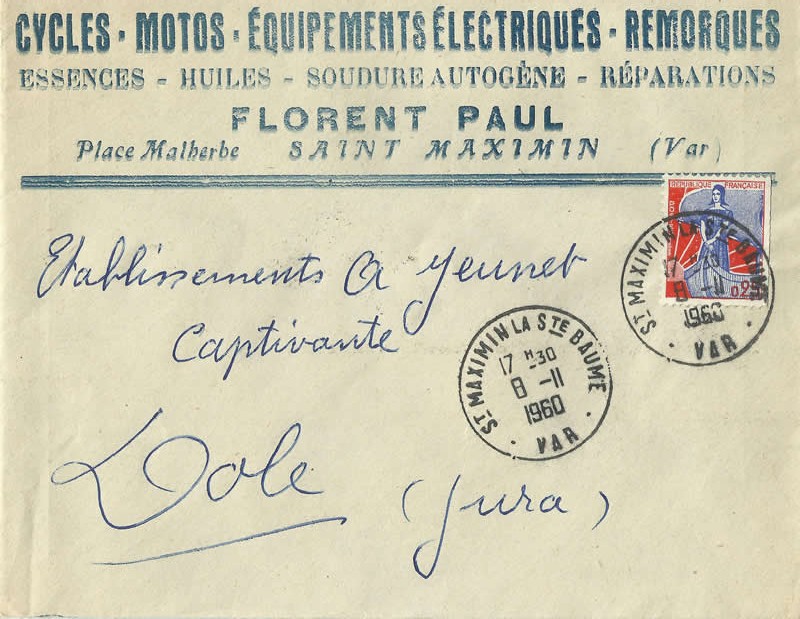 CYCLES - MOTOS - ÉQUIPEMENTS ÉLECTRIQUES - REMORQUES
ESSENCES - HUILES - SOUDURE AUTOGÈNE - RÉPARATIONS
FLORENT PAUL
Place Malherbe SAINT MAXIMIN (Var)
REPUBLIQUE FRANÇAISE
0,25
ST MAXIMIN LA STE BAUME
17 H 30
8 -11
1960
VAR
Etablissements A Jeunet
Captivante
ST MAXIMIN LA STE BAUME
17 H 30
8 -11
1960
VAR
Dole (Jura)